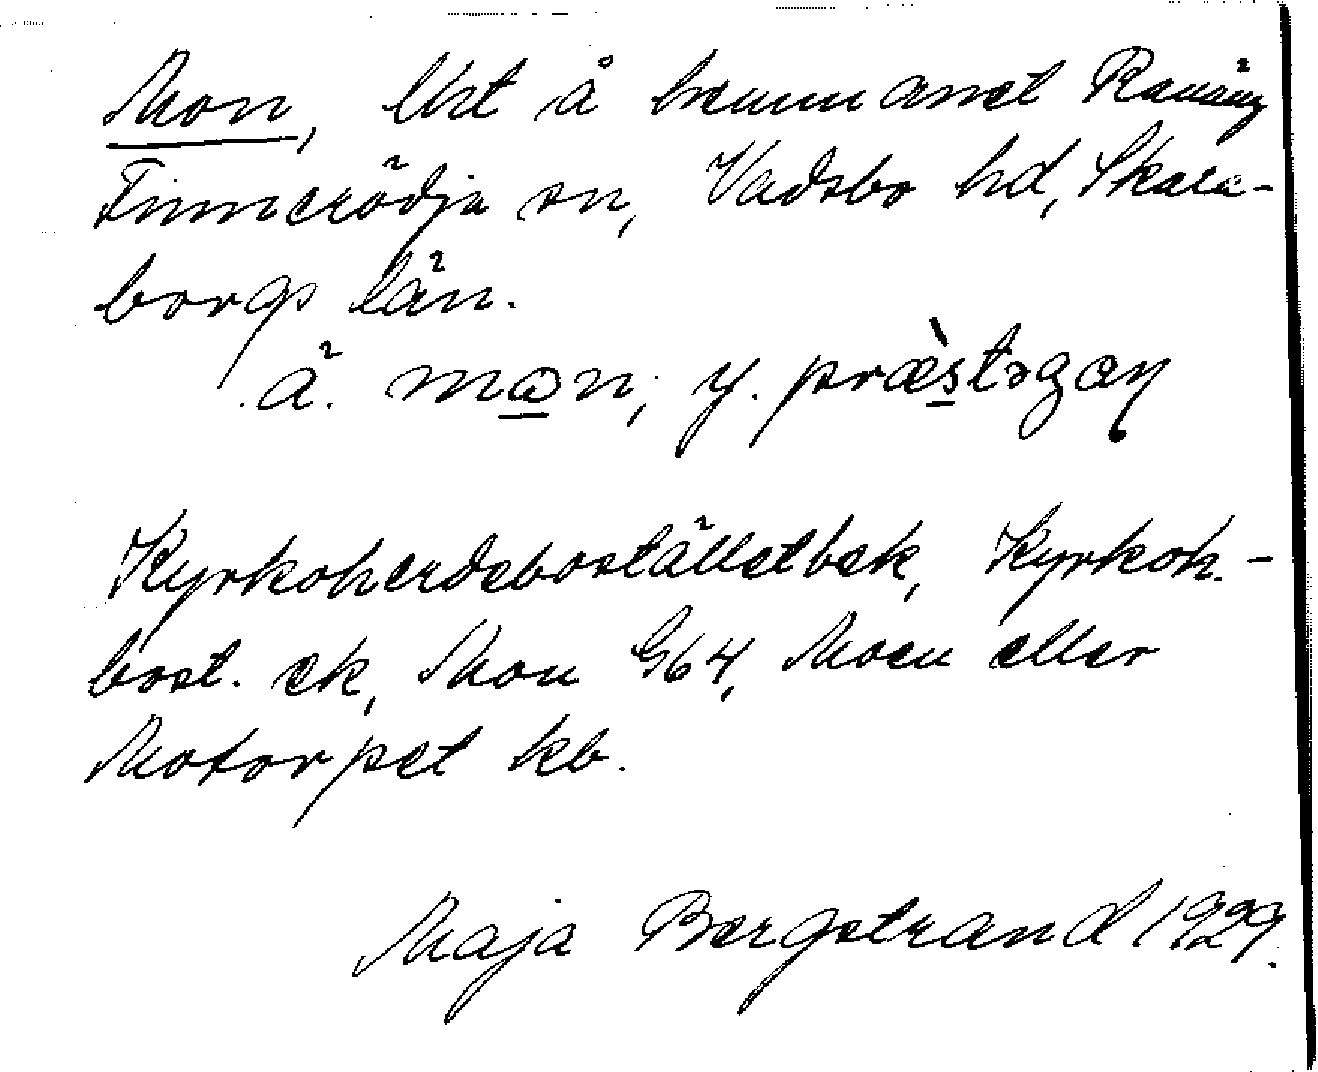 Mon, lht å hemmanet Ramsäng
Finnerödja sn, Vadsbo hd, Skara-
borgs län.
ä. mɷn, y. præ̀stəgaɳ
Kyrkoherdebostället bek, Kyrkoh.-
bost. ek, Mon G64, Moen eller
Motorpet kb.
Maja Bergstrand 1929.